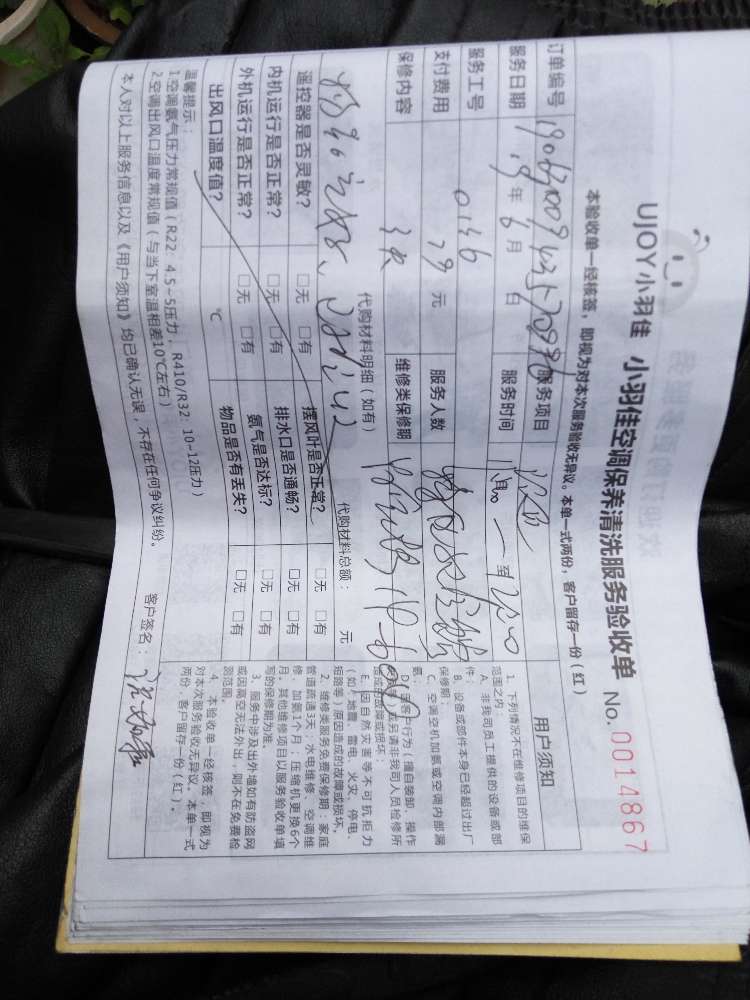 UJOY小羽佳 小羽佳空调保养清洗服务验收单 No.0014867
本验收单一经核签，即视为对本次服务验收无异议。本单一式两份，客户留存一份(红)
订单编号 服务项目
服务日期 19年6月 日 服务时间 至
服务工号 0136 服务人数
支付费用 79元
保修内容 维修类保修期
代购材料明细(如有) 代购材料总额： 元
遥控器是否灵敏？ □无 □有 摆风叶是否正常？ □无 □有
内机运行是否正常？ □无 □有 排水口是否通畅？ □无 □有
外机运行是否正常？ □无 □有 氨气是否达标？ □无 □有
出风口温度值？ ℃ 物品是否有丢失？ □无 □有
温馨提示：
1.空调氨气压力常规值（R22：4.5~5压力、R410/R32：10-12压力）
2.空调出风口温度常规值（与当下室温相差10℃左右）
本人对以上服务信息以及《用户须知》均已确认无误，不存在任何争议纠纷。 客户签名：
用户须知
1、下列情况不在维修项目的维保
范围之内：
A、非我司员工提供的设备或部
件；
B、设备或部件本身已经超过出厂
保修期；
C、空调空机加氨或空调内部漏
氨；
D、客户行为，擅自装卸、操作
或另请非我司人员检修所
造成的故障或损坏；
E、因自然灾害等不可抗拒力
（如：地震、雷电、火灾、停电、
短路等）原因造成的故障或损坏。
2、维修类服务免费保修期：家庭
管道疏通3天，水电维修、空调维
修、加氨1个月；压缩机更换6个
月；其他维修项目以服务验收单填
写的保修期为准。
3、服务中涉及出外墙如有防盗网
或因隔空无法外出，则不在免费检
测范围。
4、本验收单一经核签，即视为
对本次服务验收无异议。本单一式
两份，客户留存一份(红)。